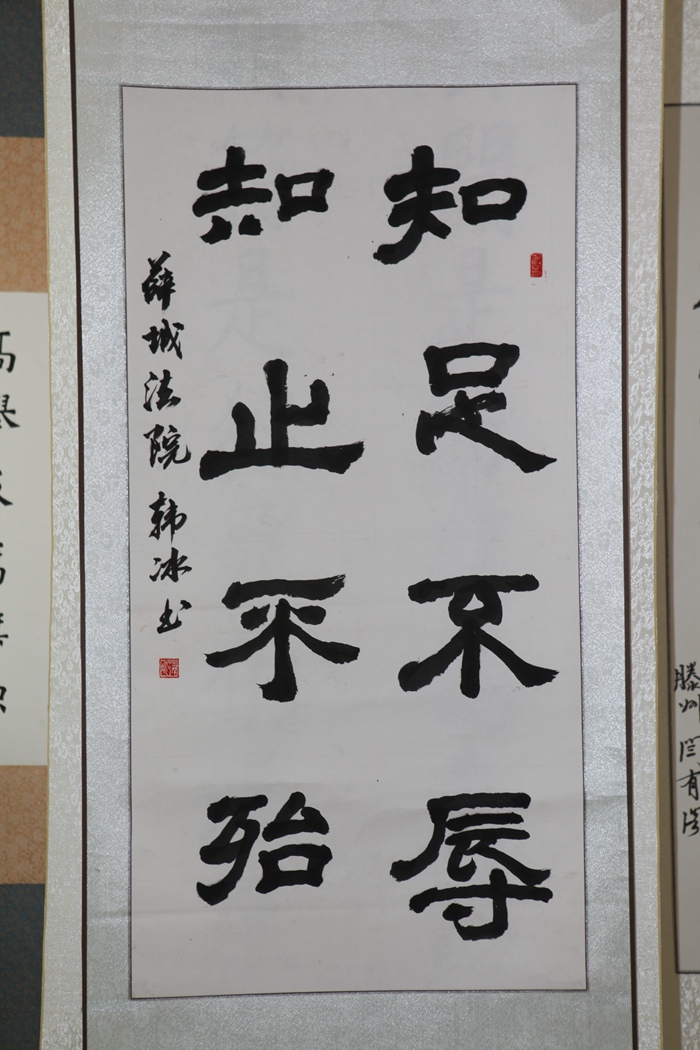 知足不辱
知止不殆
薛城法院 韩冰书
滕州闫有